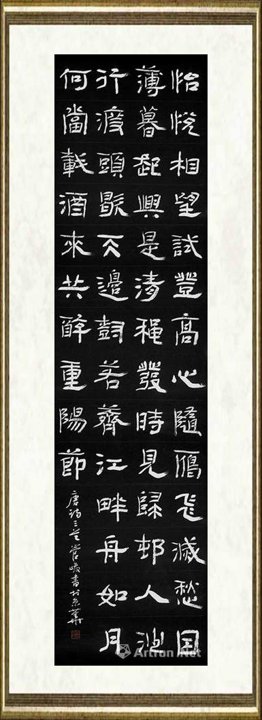 怡悅相望試登高心隨鴈飛滅愁因
薄暮起興是清穐發時見歸邨人沙
行渡頭歇天邊尌若薺江畔舟如月
何當載酒來共醉重陽節
唐詩 管峻書於京華
Artron.Net